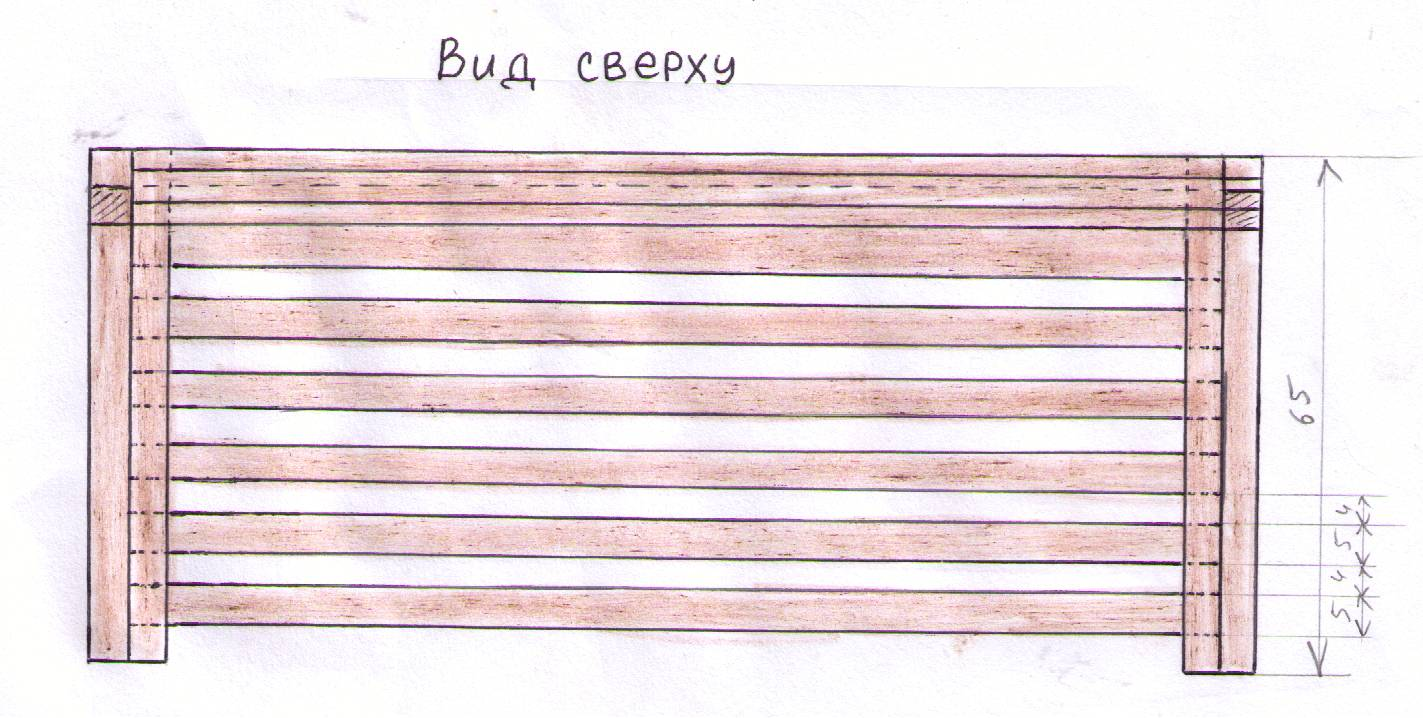 Вид сверху
65
4
5
4
5